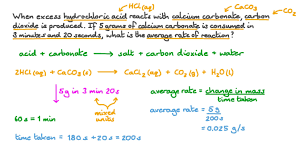 HCl(aq)
CaCO₃
When excess hydrochloric acid reacts with calcium carbonate, carbon
CO₂
dioxide is produced. If 5 grams of calcium carbonate is consumed in
3 minutes and 20 seconds, what is the average rate of reaction?
acid + carbonate → salt + carbon dioxide + water
2HCl(aq) + CaCO₃(s) → CaCl₂(aq) + CO₂(g) + H₂O(l)
5g in 3 min 20s
mixed
units
average rate = change in mass
time taken
60s = 1 min
average rate = 5g
200s
= 0.025 g/s
time taken = 180s + 20s = 200s